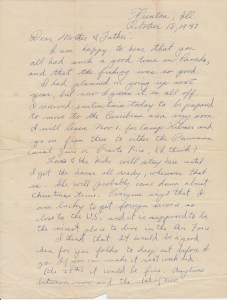 October 15, 1947
Dear Mother & Father:
I am happy to hear that you
all had such a good time in Canada,
and that the fishing was so good.
I had planned on going up next
year, but now I guess it is all off.
I received instructions today to be prepared
to move to the Caribbean area very soon.
I will leave Nov 1, for Camp Kilmer and
go on from there to either the Panama
Canal Zone or Puerto Rico, (I think).
and the kids will stay here until
I get the house all ready, wherever that
is. She will probably come down about
Christmas time. Everyone says that I
am lucky to get foreign service so
close to the U.S. and it is supposed to be
the nicest place to live in the Air Force.
I think that it would be a good
idea for you folks to drive out before I
go. If you can make it next week end
(Oct 25th) it would be fine. Anytime
between now and the